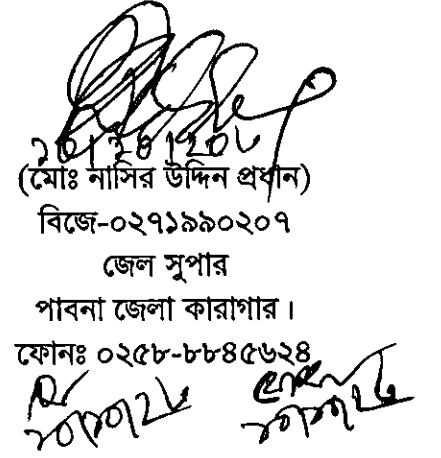 (মোঃ নাসির উদ্দিন প্রধান)
বিজে-০২৭১৯৯০২০৭
জেল সুপার
পাবনা জেলা কারাগার।
ফোনঃ ০২৫৮-৮৮৪৫৬২৪